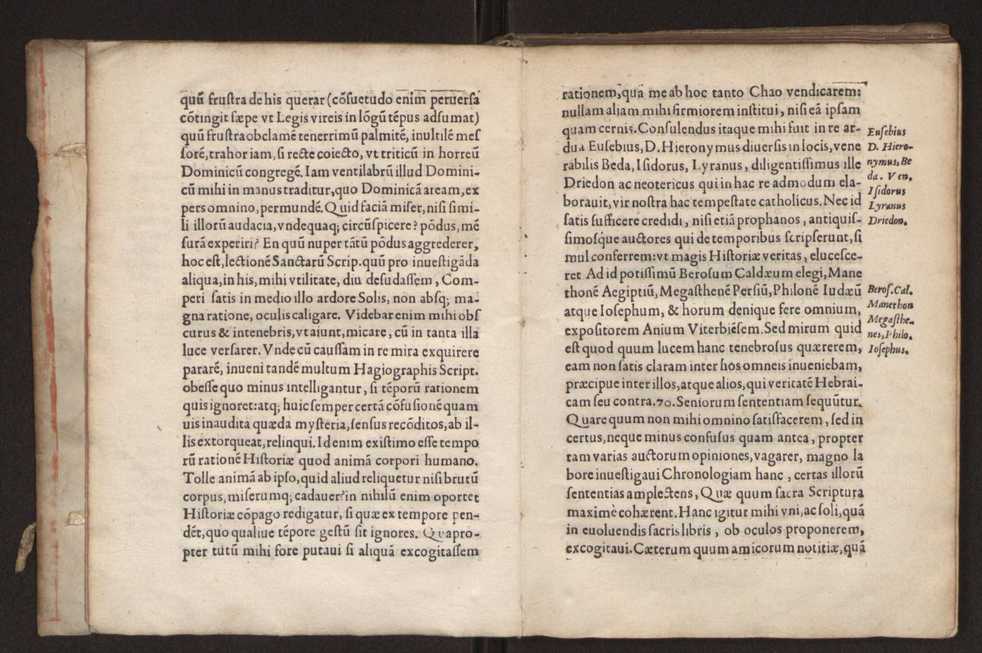 quũ frustra de his querar (cõsuetudo enim peruersa
cõtingit sæpe vt Legis vireis in lõgũ tẽpus adsumat)
quũ frustra obclamẽ tenerrimũ palmitẽ, inutilẽ mes
sorẽ, trahor iam, si recte coiecto, vt triticũ in horreũ
Dominicũ congregẽ. Iam ventilabrũ illud Domini-
cũ mihi in manus traditur, quo Dominicã aream, ex
pers omnino, permundẽ. Quid faciã miser, nisi simi-
li illorũ audacia, vndequaq; circũspicere? põdus, mẽ
surã experiri? En quũ nuper tãtũ põdus aggrederer,
hoc est, lectionẽ Sanctarũ Scrip. quũ pro inuestigãda
aliqua, in his, mihi vtilitate, diu desudassem, Com-
peri satis in medio illo ardore Solis, non absq; ma-
gna ratione, oculis caligare. Videbar enim mihi obs
curus & in tenebris, vt aiunt, micare, cũ in tanta illa
luce versarer. Vnde cũ caussam in re mira exquirere
pararẽ, inueni tandẽ multum Hagiographis Script.
obesse quo minus intelligantur, si tẽporũ rationem
quis ignoret: atq; huic semper certã cõfusionẽ quam
uis inaudita quædа mysteria, sensus recõditos, ab il-
lis extorqueat, relinqui. Id enim existimo esse tempo
rũ rationẽ Historiæ quod animã corpori humano.
Tolle animã ab ipso, quid aliud reliquetur nisi brutũ
corpus, miserumq; cadauer? in nihilũ enim oportet
Historiæ cõpago redigatur, si quæ ex tempore pen-
dẽt, quo qualiue tẽpore gestũ sit ignores. Quapro-
pter tutũ mihi fore putaui si aliquã excogitassem
rationem, qua me ab hoc tanto Chao vendicarem:
nullam aliam mihi firmiorem institui, nisi eã ipsam
quam cernis. Consulendus itaque mihi fuit in re ar-
dua Eusebius, D. Hieronymus diuersis in locis, vene
rabilis Beda, Isidorus, Lyranus, diligentissimus ille
Driedon ac neotericus qui in hac re admodum ela-
borauit, vir nostra hac tempestate catholicus. Nec id
satis sufficere credidi, nisi etiã prophanos, antiquis-
simosque auctores qui de temporibus scripserunt, si
mul conferrem: vt magis Historiæ veritas, elucesce-
ret Ad id potissimũ Berosum Caldæum elegi, Mane
thonẽ Aegiptiũ, Megasthenẽ Persiũ, Philonẽ Iudæũ
atque Iosephum, & horum denique fere omnium,
expositorem Anium Viterbiẽsem. Sed mirum quid
est quod quum lucem hanc tenebrosus quærerem,
eam non satis claram inter hos omneis inueniebam,
præcipue inter illos, atque alios, qui veritatẽ Hebrai-
cam seu contra. 70. Seniorum sententiam sequũtur.
Quare quum non mihi omnino satisfacerem, sed in
certus, neque minus confusus quam antea, propter
tam varias auctorum opiniones, vagarer, magno la
bore inuestigaui Chronologiam hanc, certas illorũ
sententias amplectens, Quæ quum sacra Scriptura
maximè cohærent. Hanc igitur mihi vni, ac soli, quã
in euoluendis sacris libris, ob oculos proponerem,
excogitaui. Cæterum quum amicorum notitiæ, quã
Eusebius
D. Hiero-
nymus, Be
da. Ven.
Isidorus
Lyranus
Driedon.
Beros. Cal.
Manethon
Megasthe-
nes, Philo.
Iosephus.